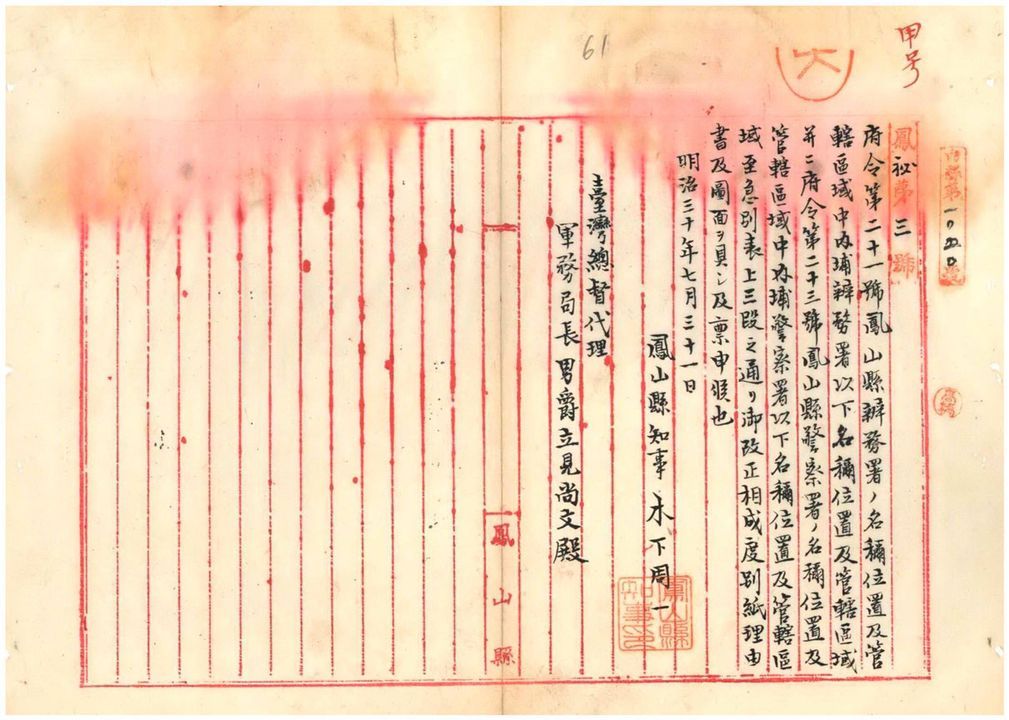 甲号
大
61
鳳秘第三號
府令第二十一號鳳山縣辨務署ノ名稱位置及管
轄區域中内埔辨務署以下名稱位置及管轄區域
并ニ府令第二十三號鳳山縣警察署ノ名稱位置及
管轄區域中内埔警察署以下名稱位置及管轄區
域至急別表上三段之通リ御改正相成度別紙理由
書及圖面ヲ具シ及禀申候也
明治三十年七月三十一日
鳳山縣知事木下周一
鳳山縣知事之印
臺灣總督代理
軍務局長男爵立見尚文殿
鳳山縣